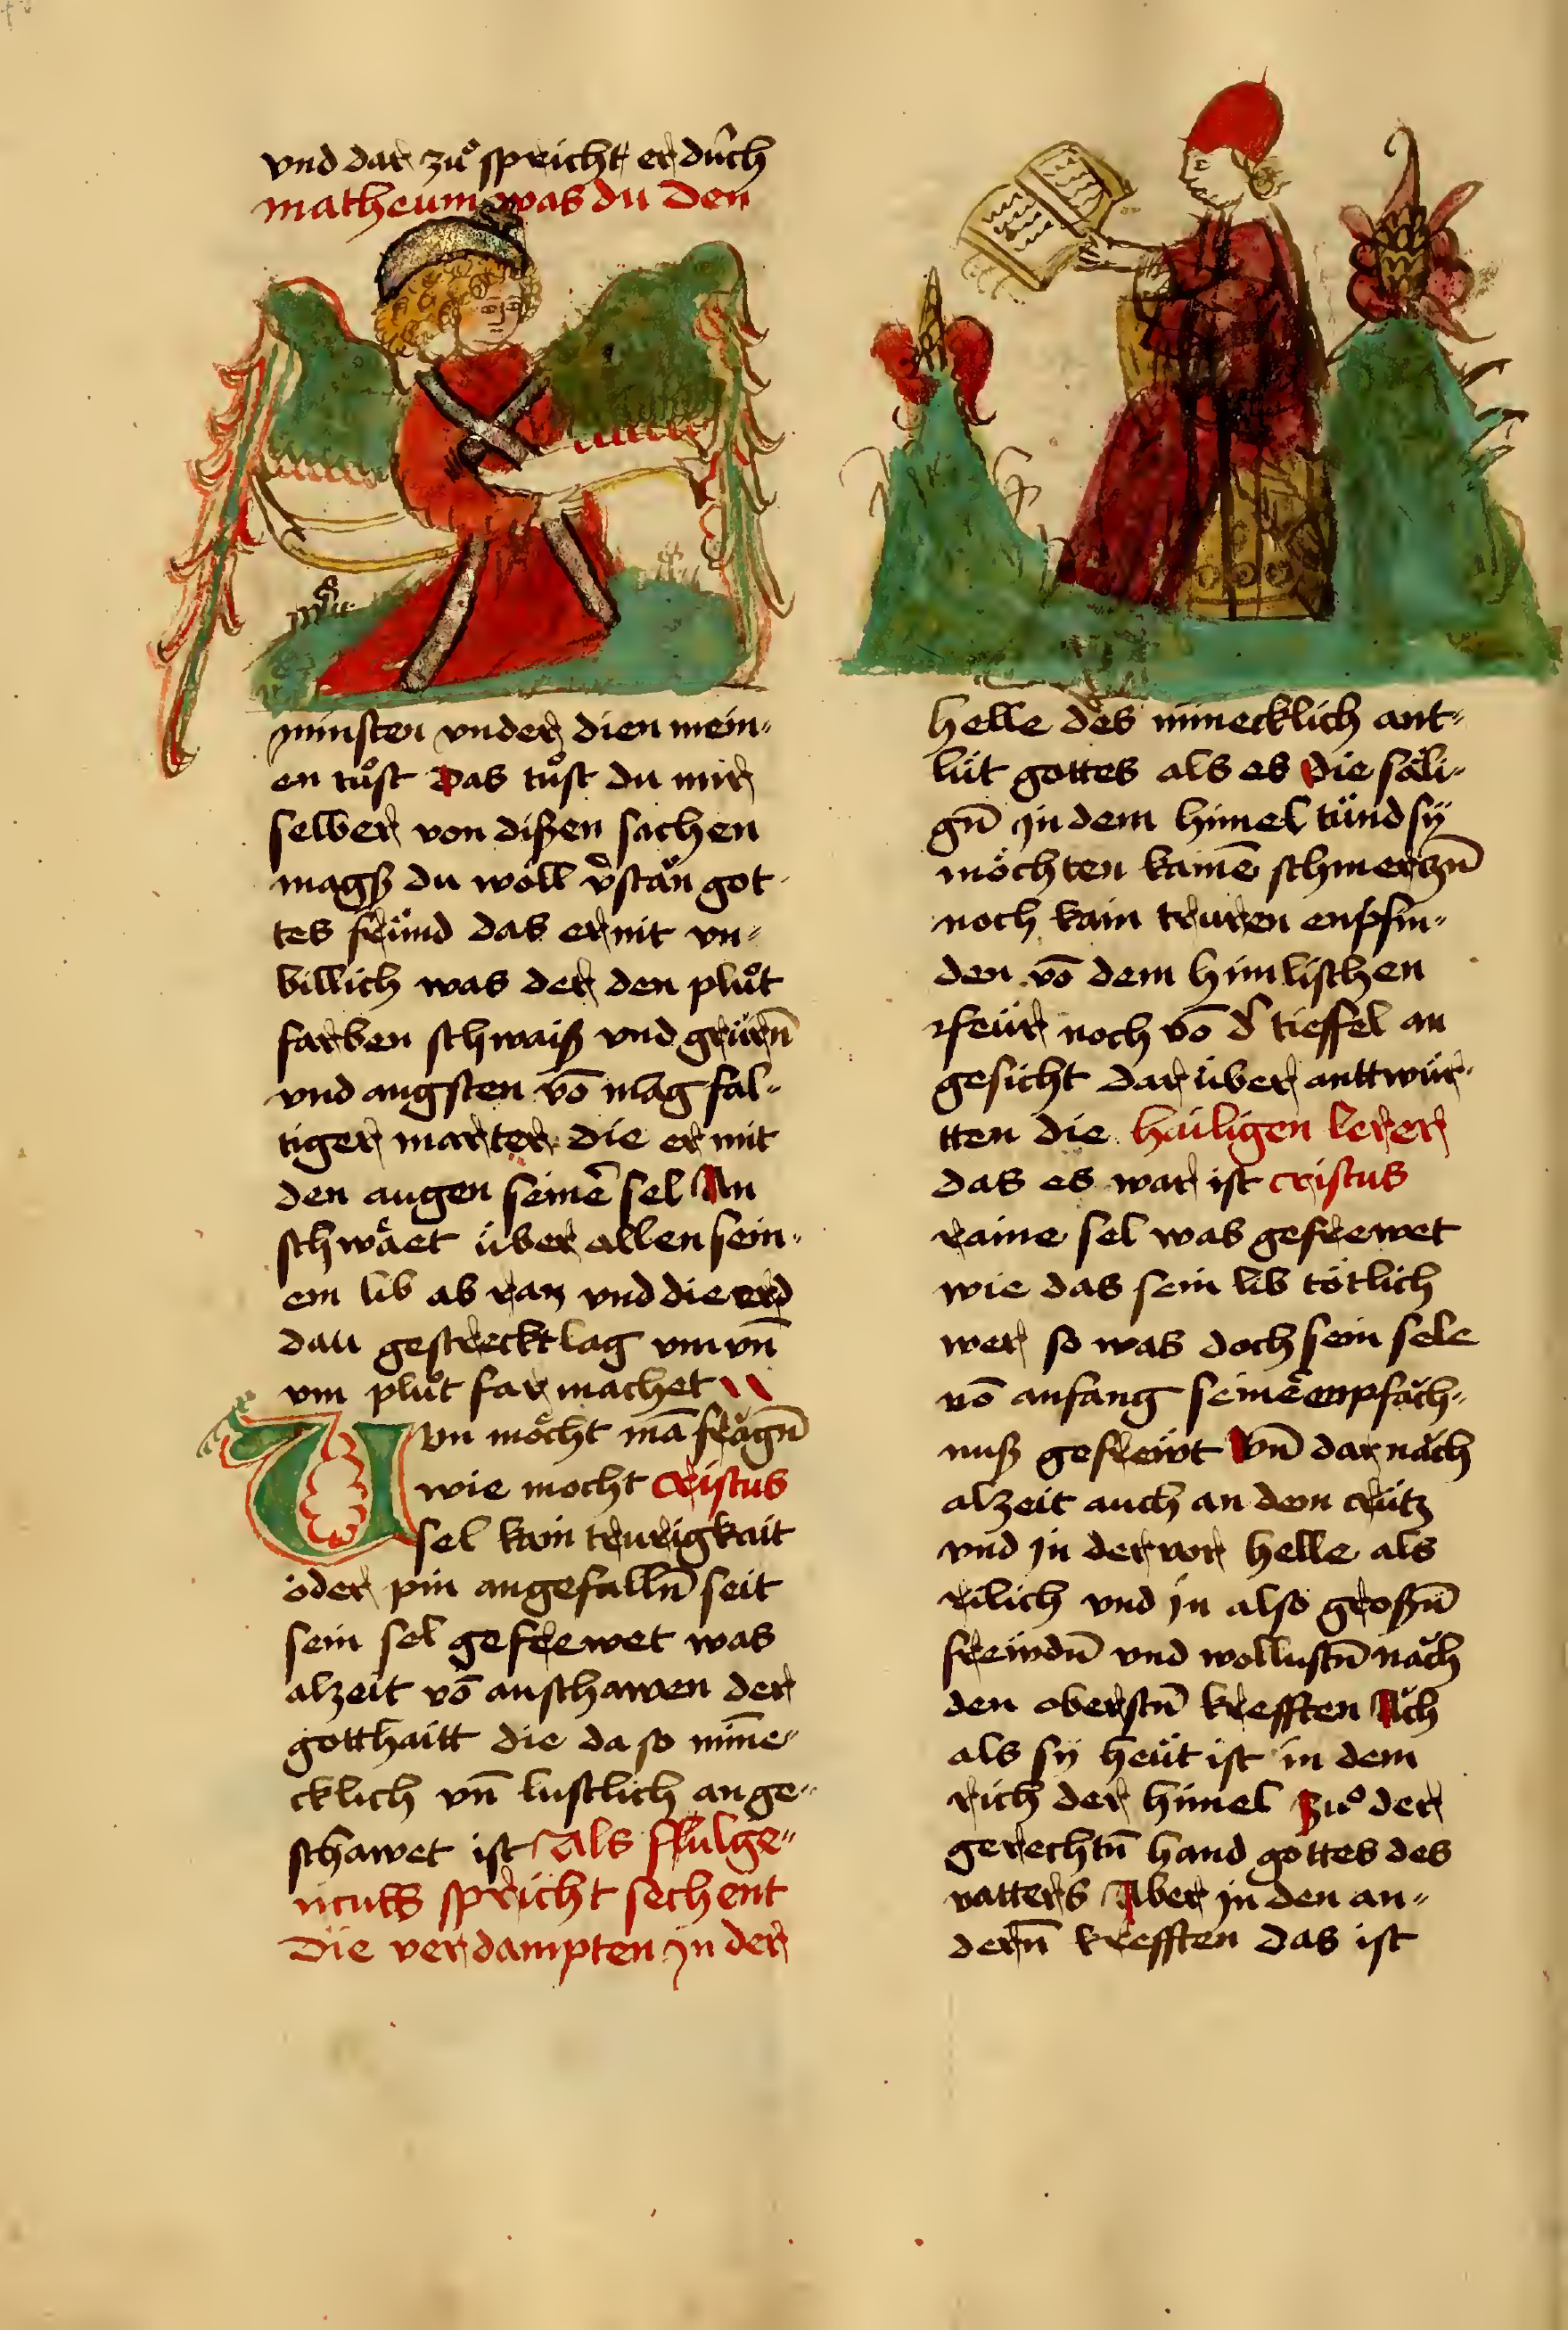 vnd dar zuͦ spricht er dúrch
matheum was du den
minsten vnder dien mein„
en tuͦst Das tuͦst du mir
selber von dißen sachen
magß du woll v̾stän got
tes fründ das er nit vn„
billich was der den pluͦt
farben schwaiß vnd grürn̄
vnd angsten vō māgfal„
tiger marter die er mit
den augen seinē sel An
schwaͤet über allen sein„
em lib ab ran vnd die erd
dau gestreckt lag vm vn̄
vm pluͦt far machet
Un möcht mā frägn̄
wie mocht Cristus
sel kain trurigkait
oder pin angefalln̄ seit
sein sel gefrewet was
alzeit vō anschawen der
gotthaitt die da so mīne„
cklich vn̄ lustlich ange„
schawet ist Als ffulge„
ncuss spricht sechent
Die verdampten jn der
helle des minecklich ant„
lüt gottes als es die säli„
gn̄ jn dem himel tünd sÿ
möchten kainē schmerczn̄
noch kain truren enpfin„
den vō dem himlischen
feür noch vō d̾ tieffel an
gesicht dar über anttwür„
tten die hailigen lerer
das es war ist cristus
raine sel was gefrewet
wie das sein lib tötlich
wer so was doch sein sele
vō anfang seineͤ enpfäch„
nuß gefrewt Vn̄ dar näch
alzeit auch an dem crütz
vnd jn der vor helle als
rilich vnd jn also großn̄
freiwdn̄ vnd wollustn̄ näch
den oberstn̄ krefften Äch
als sÿ heüt ist in dem
rich der himel Zuͦ der
gerechtn̄ hand gottes des
vatters Aber jn den an„
dern̄ krefften das ist